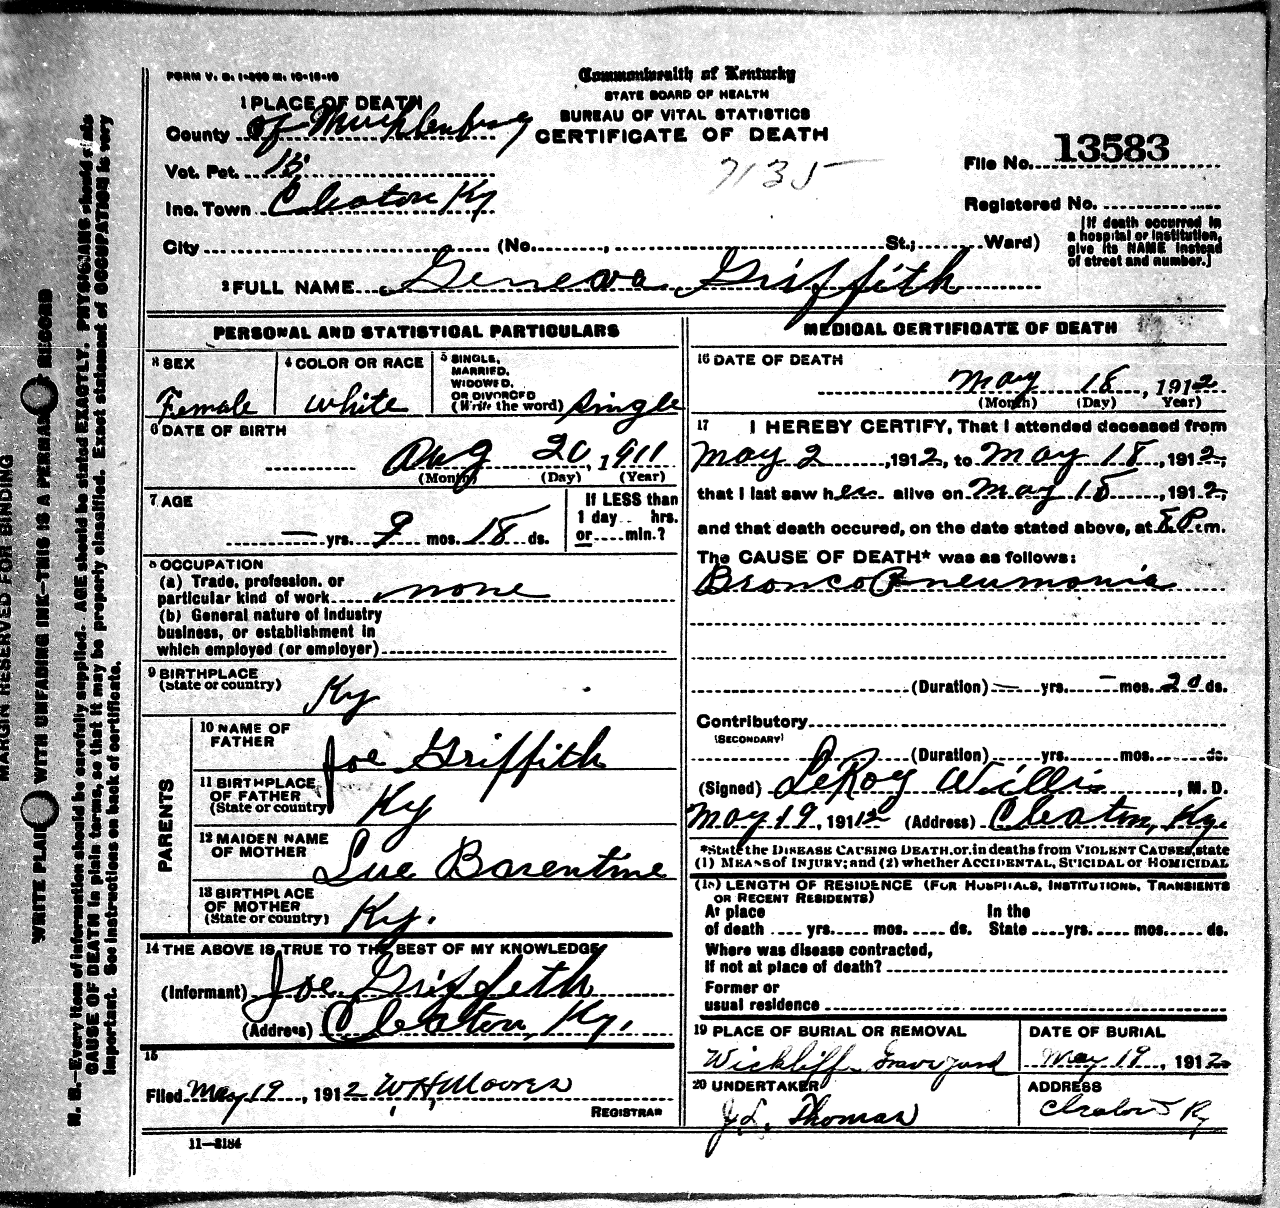 FORM V. S. 1-
Commonwealth of Kentucky
STATE BOARD OF HEALTH
BUREAU OF VITAL STATISTICS
CERTIFICATE OF DEATH
1 PLACE OF DEATH
County of Muchlenburg
Vot. Pct. 15
Inc. Town Cleaton Ky
City (No. , St.; Ward)
7135
File No. 13583
Registered No.
[If death occurred in
a hospital or institution,
give its NAME instead
of street and number.]
2 FULL NAME Geneva Griffith
PERSONAL AND STATISTICAL PARTICULARS
3 SEX
Female
4 COLOR OR RACE
white
5 SINGLE,
MARRIED,
WIDOWED,
OR DIVORCED
(Write the word) single
6 DATE OF BIRTH
Aug 20, 1911
(Month) (Day) (Year)
7 AGE
— yrs. 9 mos. 18 ds.
If LESS than
1 day hrs.
or min.?
8 OCCUPATION
(a) Trade, profession, or
particular kind of work none
(b) General nature of Industry
business, or establishment in
which employed (or employer)
9 BIRTHPLACE
(State or country) Ky
PARENTS
10 NAME OF
FATHER Joe Griffith
11 BIRTHPLACE
OF FATHER
(State or country) Ky
12 MAIDEN NAME
OF MOTHER Sue Barentine
13 BIRTHPLACE
OF MOTHER
(State or country) Ky.
14 THE ABOVE IS TRUE TO THE BEST OF MY KNOWLEDGE
(Informant) Joe Griffeth
(Address) Cleaton, Ky.
15
Filed May 19, 1912 W H Moores
REGISTRAR
11—3184
MEDICAL CERTIFICATE OF DEATH
16 DATE OF DEATH
May 18, 1912
(Month) (Day) Year)
17 I HEREBY CERTIFY, That I attended deceased from
May 2, 1912, to May 18, 1912,
that I last saw her alive on May 18, 1912,
and that death occured, on the date stated above, at 8 P.m.
The CAUSE OF DEATH* was as follows:
Bronco Pneumonia
(Duration) — yrs. — mos. 20 ds.
Contributory
(SECONDARY)
(Duration) yrs. mos. ds.
(Signed) LeRoy Willis, M. D.
May 19, 1912 (Address) Cleaton, Ky.
*State the DISEASE CAUSING DEATH, or, in deaths from VIOLENT CAUSES, state
(1) MEANS of INJURY; and (2) whether ACCIDENTAL, SUICIDAL or HOMICIDAL
(18) LENGTH OF RESIDENCE (FOR HOSPITALS, INSTITUTIONS, TRANSIENTS
OR RECENT RESIDENTS)
At place In the
of death yrs. mos. ds. State yrs. mos. ds.
Where was disease contracted,
If not at place of death?
Former or
usual residence
19 PLACE OF BURIAL OR REMOVAL
Wickliff Graveyard
DATE OF BURIAL
May 19, 1912
20 UNDERTAKER
J. L. Thomas
ADDRESS
Cleaton Ky
MARGIN RESERVED FOR BINDING
WRITE PLAIN WITH UNFADING INK—THIS IS A PERMANENT RECORD
N. B.—Every item of information should be carefully supplied. AGE should be stated EXACTLY. PHYSICIANS should state
CAUSE OF DEATH in plain terms, so that it may be properly classified. Exact statement of OCCUPATION is very
important. See instructions on back of certificate.